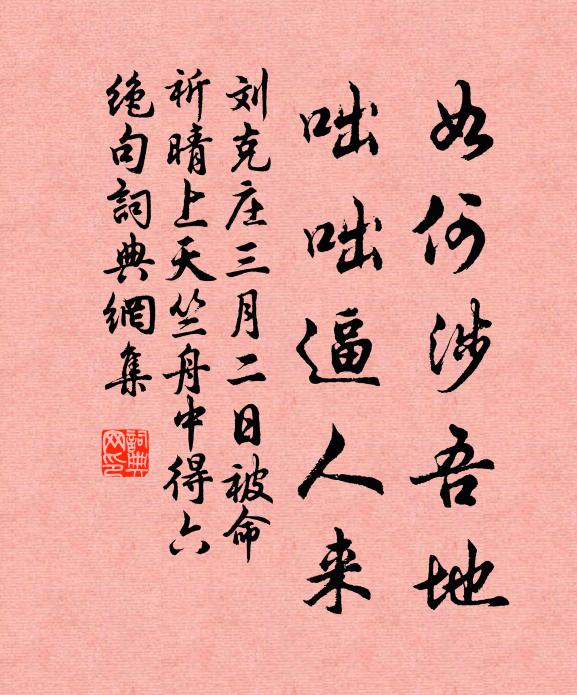 如何涉吾地
咄咄逼人来
刘克庄三月二日被命
祈晴上天竺舟中得六
绝句詞典網集
詞典网印